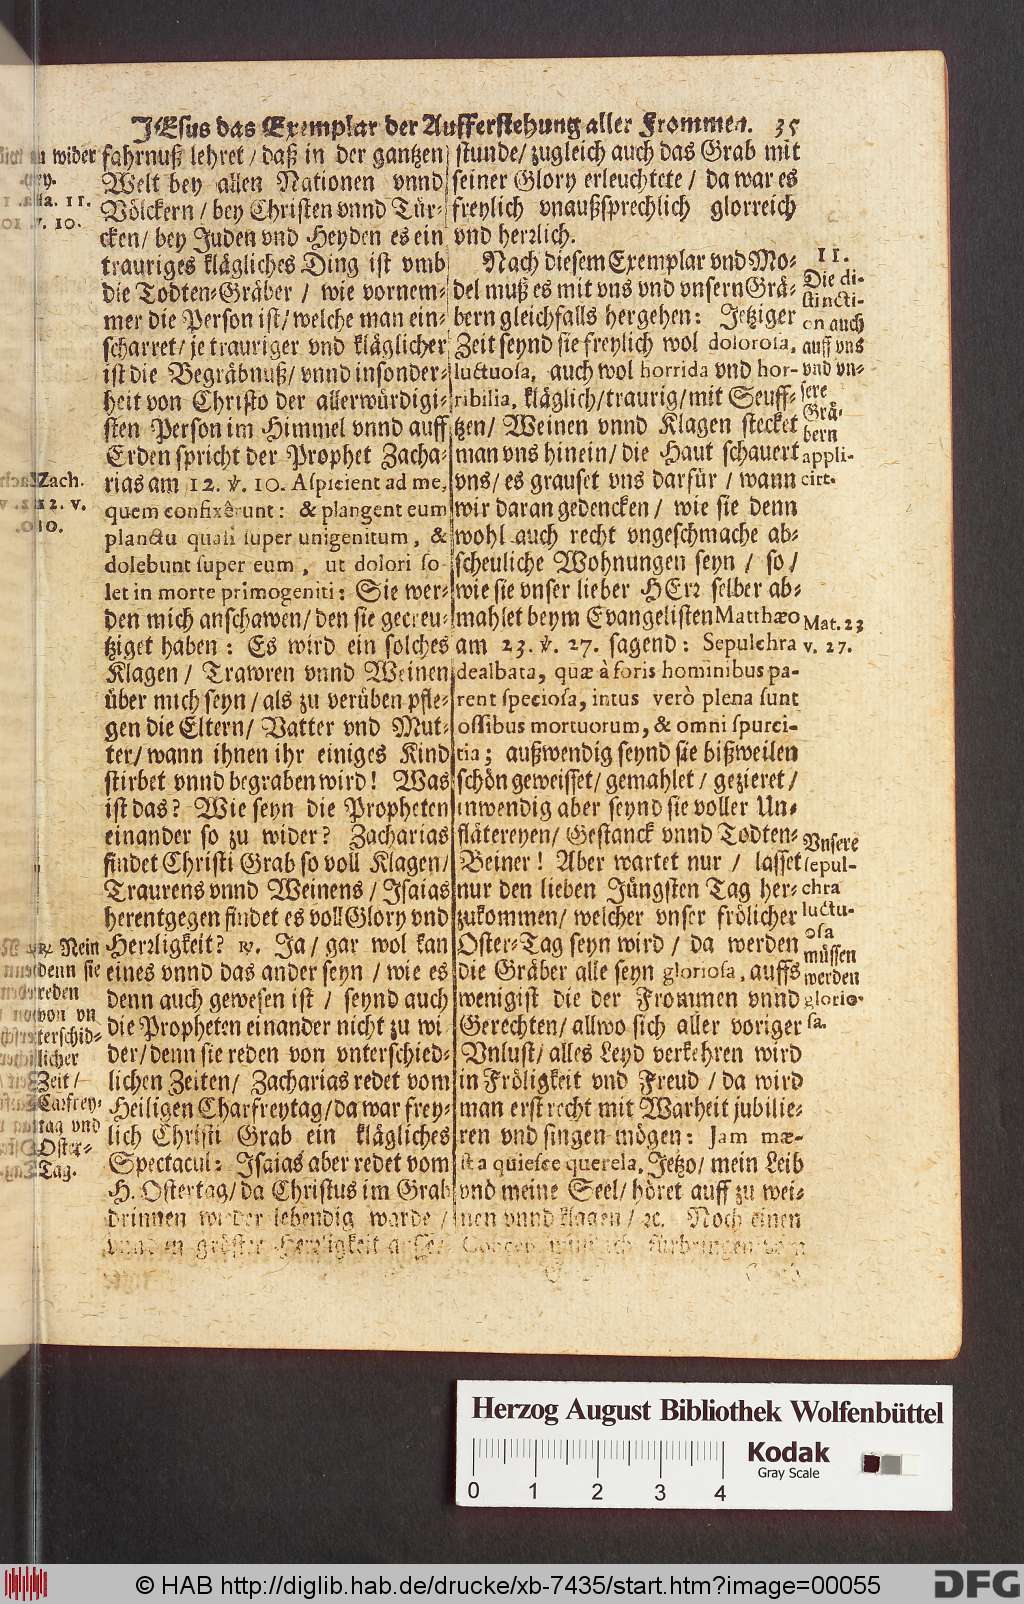 JEsus das Exemplar der Aufferstehung aller Frommen. 35
fahrnuß lehret / daß in der gantzen
Welt bey allen Nationen vnnd
Völckern / bey Christen vnnd Tür-
cken / bey Juden vnd Heyden es ein
trauriges klägliches Ding ist vmb
die Todten-Gräber / wie vornem-
mer die Person ist / welche man ein-
scharret / je trauriger vnd kläglicher
ist die Begräbnuß / vnnd insonder-
heit von Christo der allerwürdigi-
sten Person im Himmel vnnd auff
Erden spricht der Prophet Zacha-
rias am 12. ℣. 10. Aspicient ad me,
quem confixêrunt: & plangent eum
planctu quasi super unigenitum, &
dolebunt super eum, ut dolori so-
let in morte primogeniti: Sie wer-
den mich anschawen / den sie gecreu-
tziget haben: Es wird ein solches
Klagen / Trawren vnnd Weinen
über mich seyn / als zu verüben pfle-
gen die Eltern / Vatter vnd Mut-
ter / wann ihnen ihr einiges Kind
stirbet vnnd begraben wird! Was
ist das? Wie seyn die Propheten
einander so zu wider? Zacharias
findet Christi Grab so voll Klagen /
Traurens vnnd Weinens / Isaias
herentgegen findet es voll Glory vnd
Herrligkeit? ℟. Ja / gar wol kan
eines vnnd das ander seyn / wie es
denn auch gewesen ist / seynd auch
die Propheten einander nicht zu wi
der / denn sie reden von vnterschied-
lichen Zeiten / Zacharias redet vom
Heiligen Charfreytag / da war frey-
lich Christi Grab ein klägliches
Spectacul: Isaias aber redet vom
H. Ostertag / da Christus im Grab
drinnen wieder lebendig warde /
vnnd in gröster Herrligkeit
wider
11.
v. 10.
Zach.
12. v.
10.
℟. Nein
denn sie
reden
von vn
terschid-
licher
Zeit /
Carfrey-
tag vnd
Oster-
Tag.
stunde / zugleich auch das Grab mit
seiner Glory erleuchtete / da war es
freylich vnaußsprechlich glorreich
vnd herrlich.
Nach diesem Exemplar vnd Mo-
del muß es mit vns vnd vnsern Grä-
bern gleichfalls hergehen: Jetziger
Zeit seynd sie freylich wol dolorosa,
luctuosa, auch wol horrida vnd hor-
ribilia, kläglich / traurig / mit Seuff-
tzen / Weinen vnnd Klagen stecket
man vns hinein / die Haut schauert
vns / es grauset vns darfür / wann
wir daran gedencken / wie sie denn
wohl auch recht vngeschmache ab-
scheuliche Wohnungen seyn / so /
wie sie vnser lieber HErr selber ab-
mahlet beym Evangelisten Matthæo
am 23. ℣. 27. sagend: Sepulchra
dealbata, quæ à foris hominibus pa-
rent speciosa, intus verò plena sunt
ossibus mortuorum, & omni spurci-
tia; außwendig seynd sie bißweilen
schön geweisset / gemahlet / gezieret /
inwendig aber seynd sie voller Un-
flätereyen / Gestanck vnnd Todten-
Beiner! Aber wartet nur / lasset
nur den lieben Jüngsten Tag her-
zukommen / welcher vnser frölicher
Oster-Tag seyn wird / da werden
die Gräber alle seyn gloriosa, auffs
wenigist die der Frommen vnnd
Gerechten / allwo sich aller voriger
Vnlust / alles Leyd verkehren wird
in Fröligkeit vnd Freud / da wird
man erst recht mit Warheit jubilie-
ren vnd singen mögen: Jam mæ-
sta quiesce querela, Jetzo / mein Leib
vnd meine Seel / höret auff zu wei-
nen vnnd klagen / ꝛc. Noch einen
fürbringen
11.
Die di-
stincti-
on auch
auff vns
vnd vn-
sere
Grä-
bern
appli-
cirt.
Mat. 23
v. 27.
Vnsere
sepul-
chra
luctu-
osa
müssen
werden
glorio-
sa.
Herzog August Bibliothek Wolfenbüttel
Kodak
Gray Scale
0 1 2 3 4
© HAB http://diglib.hab.de/drucke/xb-7435/start.htm?image=00055
DFG